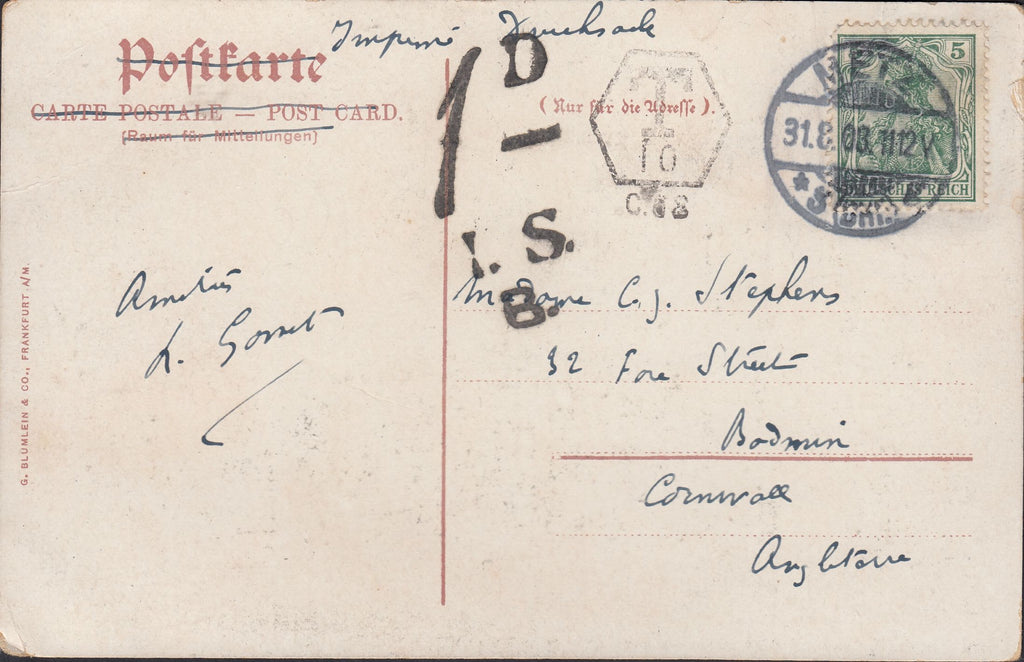 Imprimé Drucksache
Postkarte
CARTE POSTALE — POST CARD.
(Raum für Mitteilungen)
(Nur für die Adresse).
1 D
I. S.
B.
T
10
C.62
METZ
31.8.08.11-12V
DEUTSCHES REICH
5
Amitiés
L. Gorret
Madame C. J. Stephens
32 Fore Street
Bodmin
Cornwall
Angleterre
G. BLÜMLEIN & CO., FRANKFURT A/M.